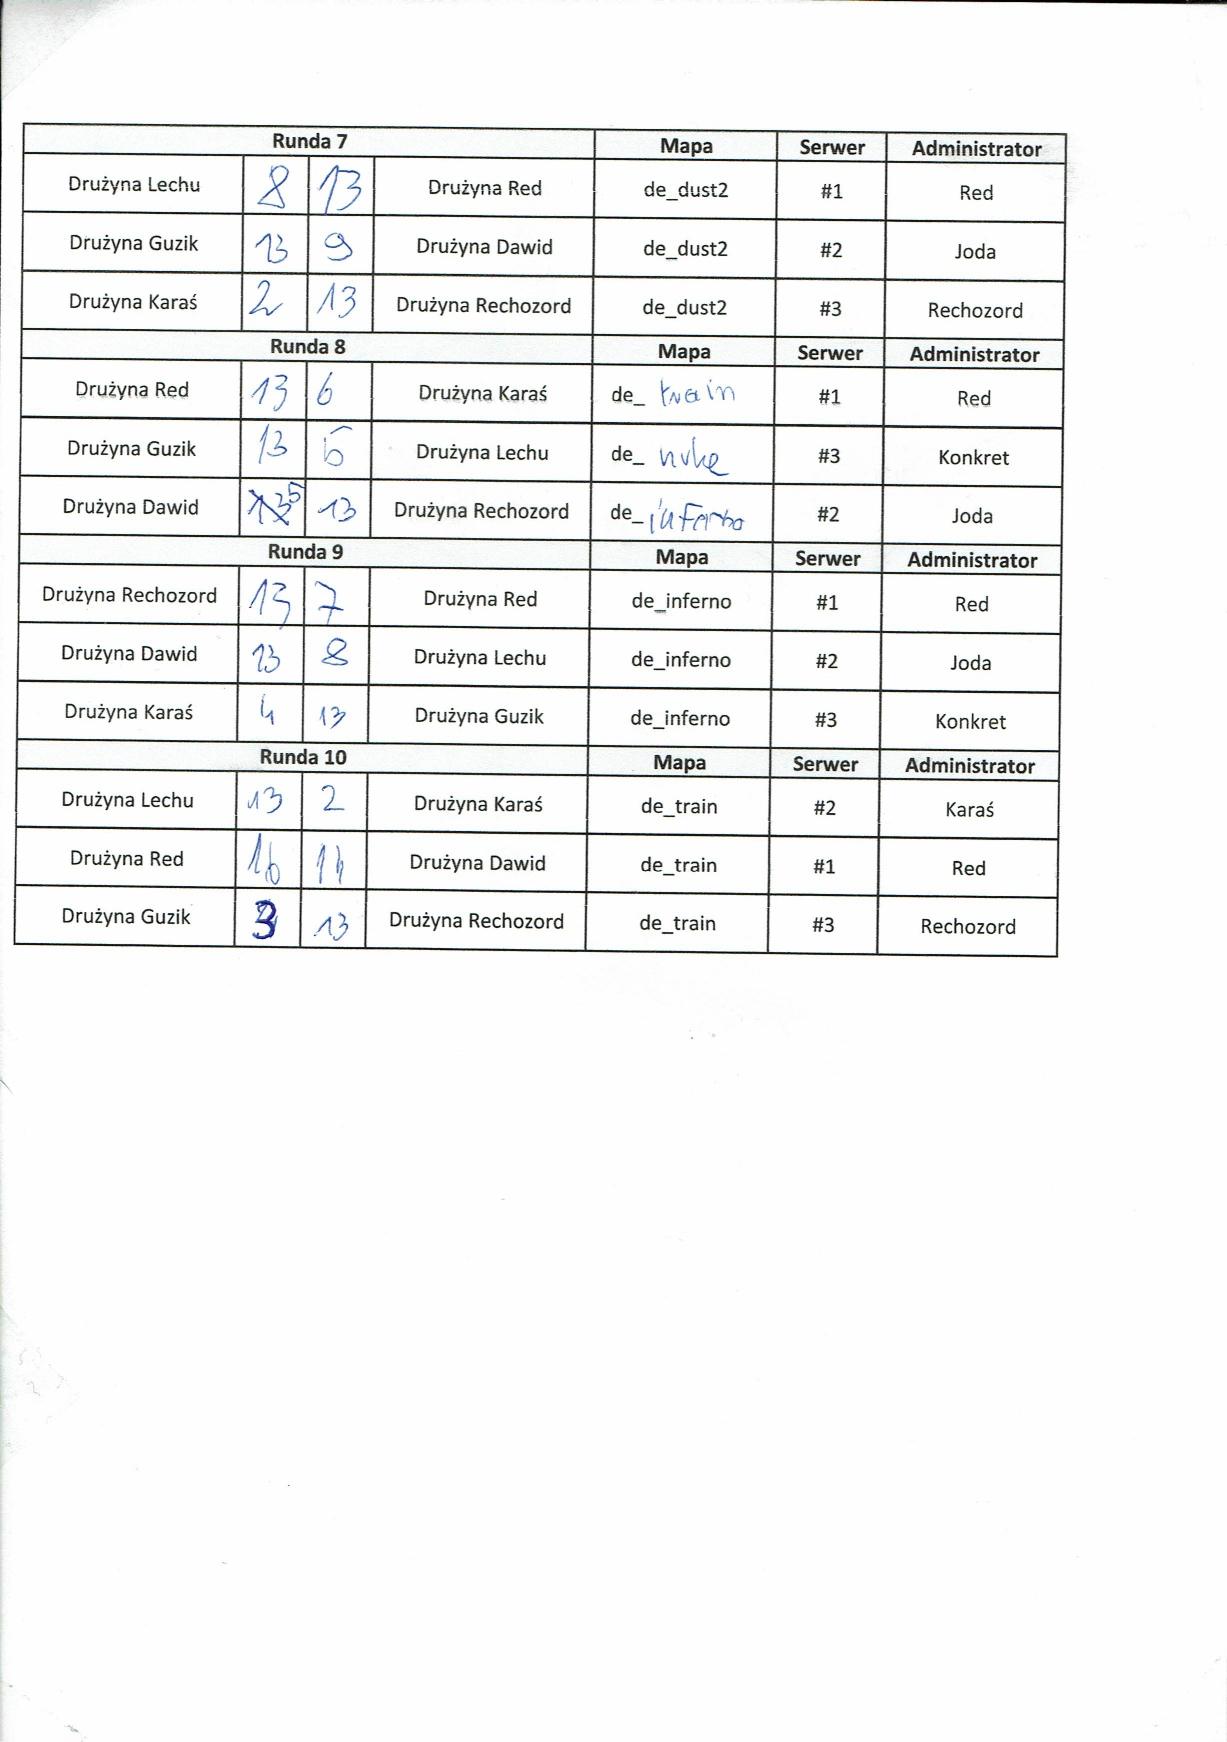 Runda 7 Mapa Serwer Administrator
Drużyna Lechu 8 13 Drużyna Red de_dust2 #1 Red
Drużyna Guzik 13 9 Drużyna Dawid de_dust2 #2 Joda
Drużyna Karaś 2 13 Drużyna Rechozord de_dust2 #3 Rechozord
Runda 8 Mapa Serwer Administrator
Drużyna Red 13 6 Drużyna Karaś de_ train #1 Red
Drużyna Guzik 13 5 Drużyna Lechu de_ nuke #3 Konkret
Drużyna Dawid 5 13 Drużyna Rechozord de_ inferno #2 Joda
Runda 9 Mapa Serwer Administrator
Drużyna Rechozord 13 7 Drużyna Red de_inferno #1 Red
Drużyna Dawid 13 8 Drużyna Lechu de_inferno #2 Joda
Drużyna Karaś 4 13 Drużyna Guzik de_inferno #3 Konkret
Runda 10 Mapa Serwer Administrator
Drużyna Lechu 13 2 Drużyna Karaś de_train #2 Karaś
Drużyna Red 16 14 Drużyna Dawid de_train #1 Red
Drużyna Guzik 3 13 Drużyna Rechozord de_train #3 Rechozord